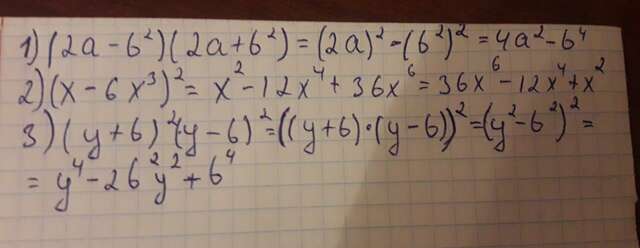 1) (2a - b²)(2a + b²) = (2a)² - (b²)² = 4a² - b⁴
2) (x - 6x³)² = x² - 12x⁴ + 36x⁶ = 36x⁶ - 12x⁴ + x²
3) (y + b)²(y - b)² = ((y + b)·(y - b))² = (y² - b²)² =
= y⁴ - 2b²y² + b⁴